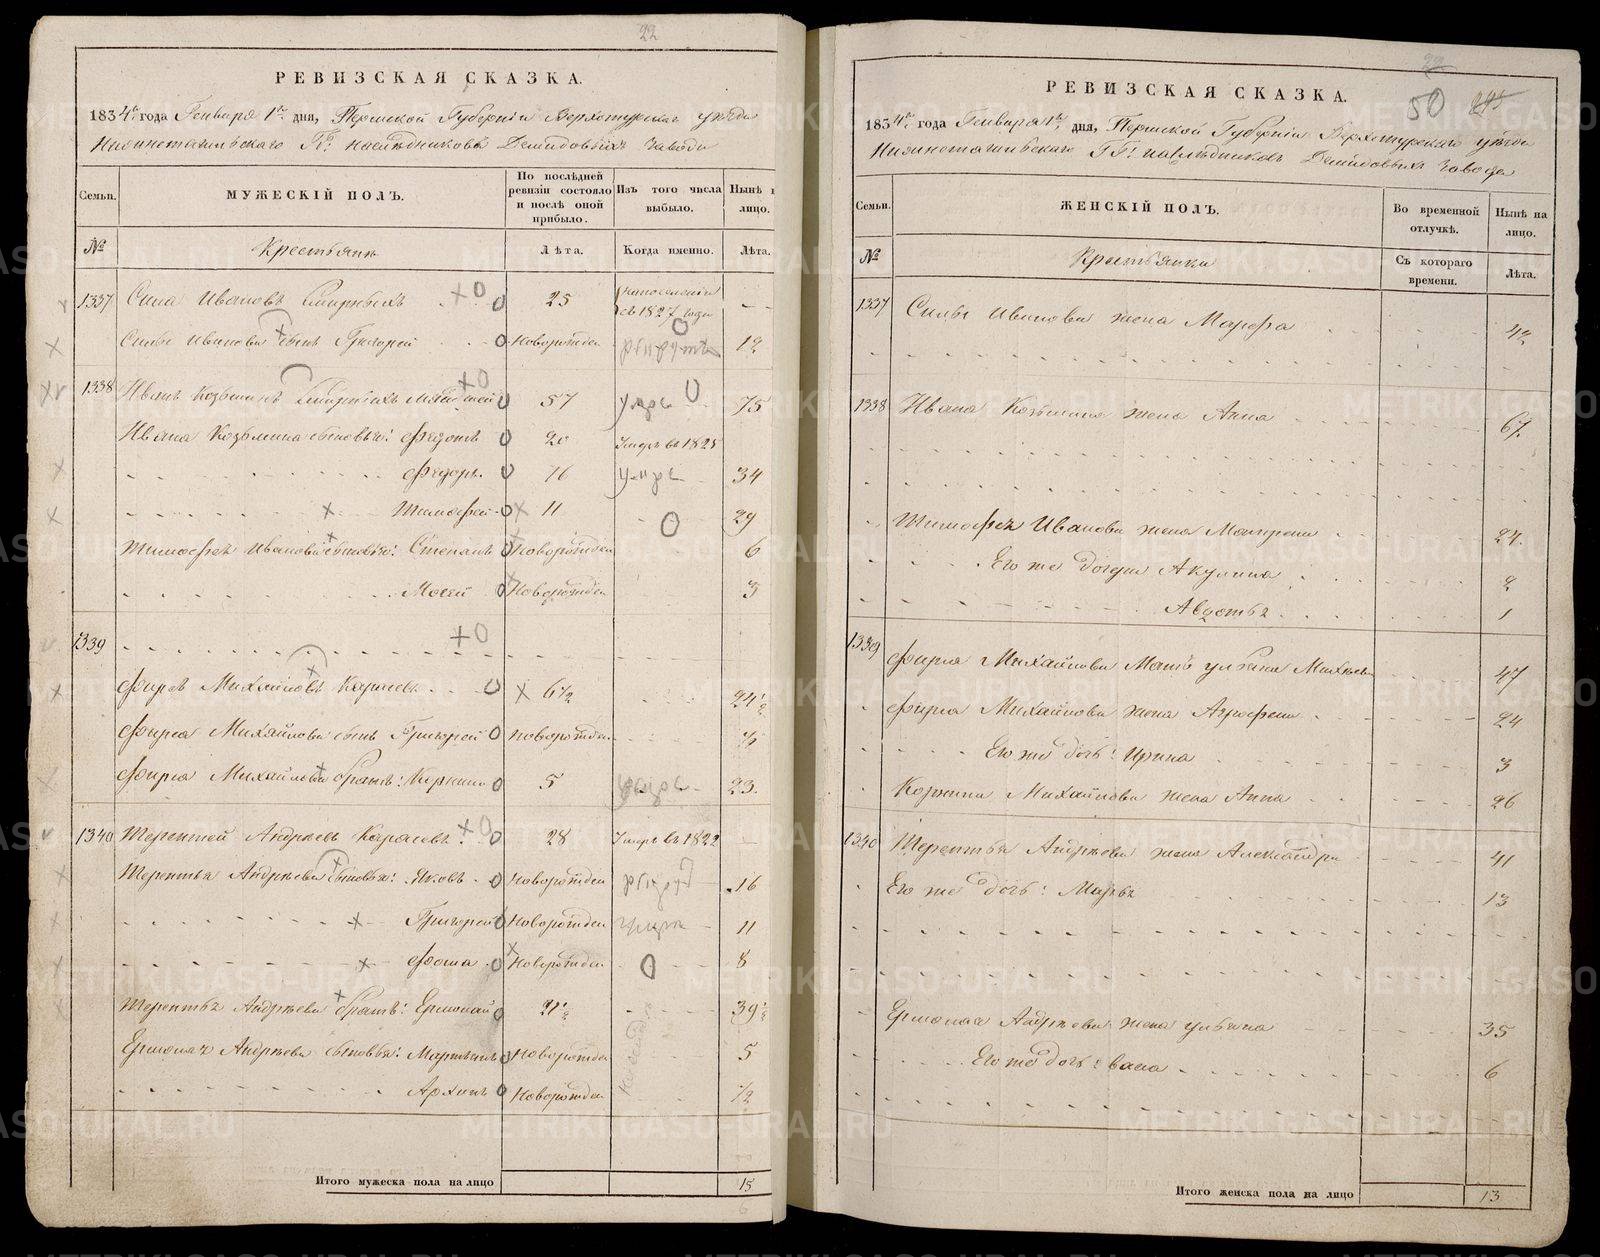 22
РЕВИЗСКАЯ СКАЗКА.
1834го года Генваря 1го дня, Пермской Губерніи Верхотурскаго уѣзда
Нижнетагильскаго Гг: наслѣдниковъ Демидовыхъ Завода
Семьи.
МУЖЕСКІЙ ПОЛЪ.
По послѣдней ревизіи состояло и послѣ оной прибыло.
Изъ того числа выбыло.
Нынѣ лицо.
№
Крестьянъ
Лѣта.
Когда именно.
Лѣта.
1337 Сила Ивановъ 25 съ 1827 года
Силы Иванова сынъ Григорей Новорожден 12
1338 Иванъ Козьминъ 57 умре 75
Ивана Козьмина сыновья: Федотъ 20 Умеръ въ 1825
Федоръ 16 умре 34
Тимофей 11 29
Тимофея Иванова сыновья: Степанъ Новорожден 6
Мосей Новорожден 3
1339
Фирсъ Михайловъ 6½ 24½
Фирса Михайлова сынъ Григорей Новорожден
Фирса Михайлова братъ: 5 умре 23
1340 Терентей Андреевъ Карасевъ 28 Умеръ въ 1822
Терентья Андреева сыновья: Яковъ Новорожден 16
Григорей Новорожден 11
Фома Новорожден 8
Терентья Андреева братъ: Ермолай 21½ 39½
Ермолая Андреева сыновья: Мартынъ Новорожден 5
Архипъ Новорожден ½
Итого мужеска пола на лицо 15
50
РЕВИЗСКАЯ СКАЗКА.
1834го года Генваря 1го дня, Пермской Губерніи Верхотурскаго уѣзда
Нижнетагильскаго ГГ: наслѣдниковъ Демидовыхъ Завода
Семьи.
ЖЕНСКІЙ ПОЛЪ.
Во временной отлучкѣ.
Нынѣ на лицо.
№
Крестьянки
Съ котораго времени.
Лѣта.
1337 Силы Иванова жена Марфа 42
1338 Ивана Козьмина жена Анна 67
Тимофея Иванова жена Матрена 27
Его же дочери Акулина 2
Авдотья 1
1339 Фирса Михайлова Мать ульяна 47
Фирса Михайлова жена Аграфена 24
Его же дочь: Ирина 3
Михайлова жена Анна 26
1340 Терентья Андреева жена Александра 41
Его же дочь: Марья 13
Ермолая Андреева жена ульяна 35
Его же дочь: васа 6
Итого женска пола на лицо 13
METRIKI.GASO-URAL.RU